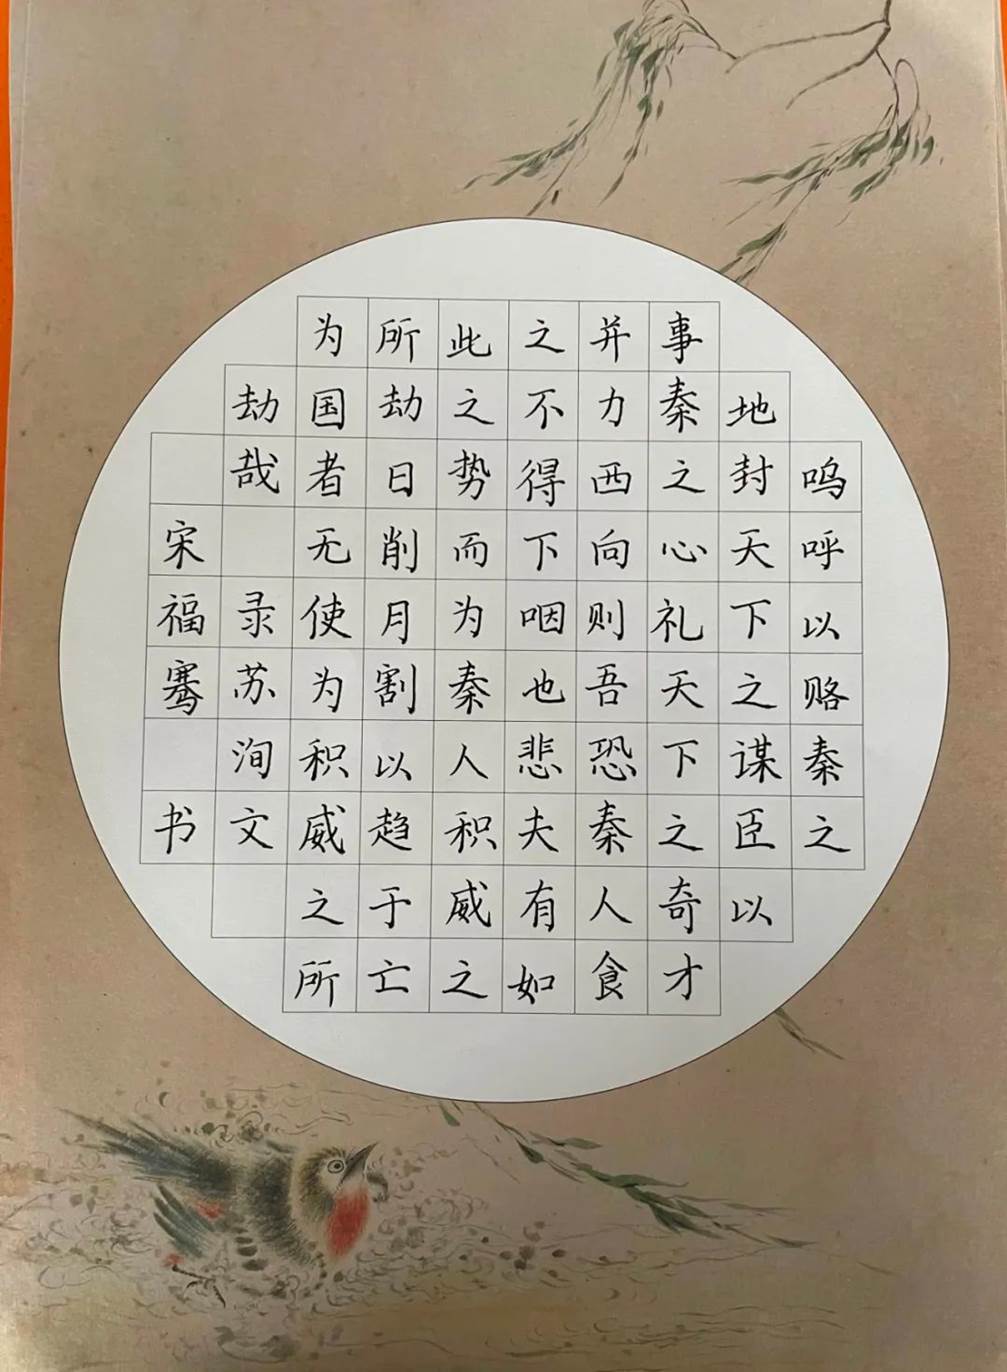 呜呼以赂秦之
地封天下之谋臣以
事秦之心礼天下之奇才
并力西向则吾恐秦人食
之不得下咽也悲夫有如
此之势而为秦人积威之
所劫日削月割以趋于亡
为国者无使为积威之所
劫哉 录苏洵文
宋福骞 书